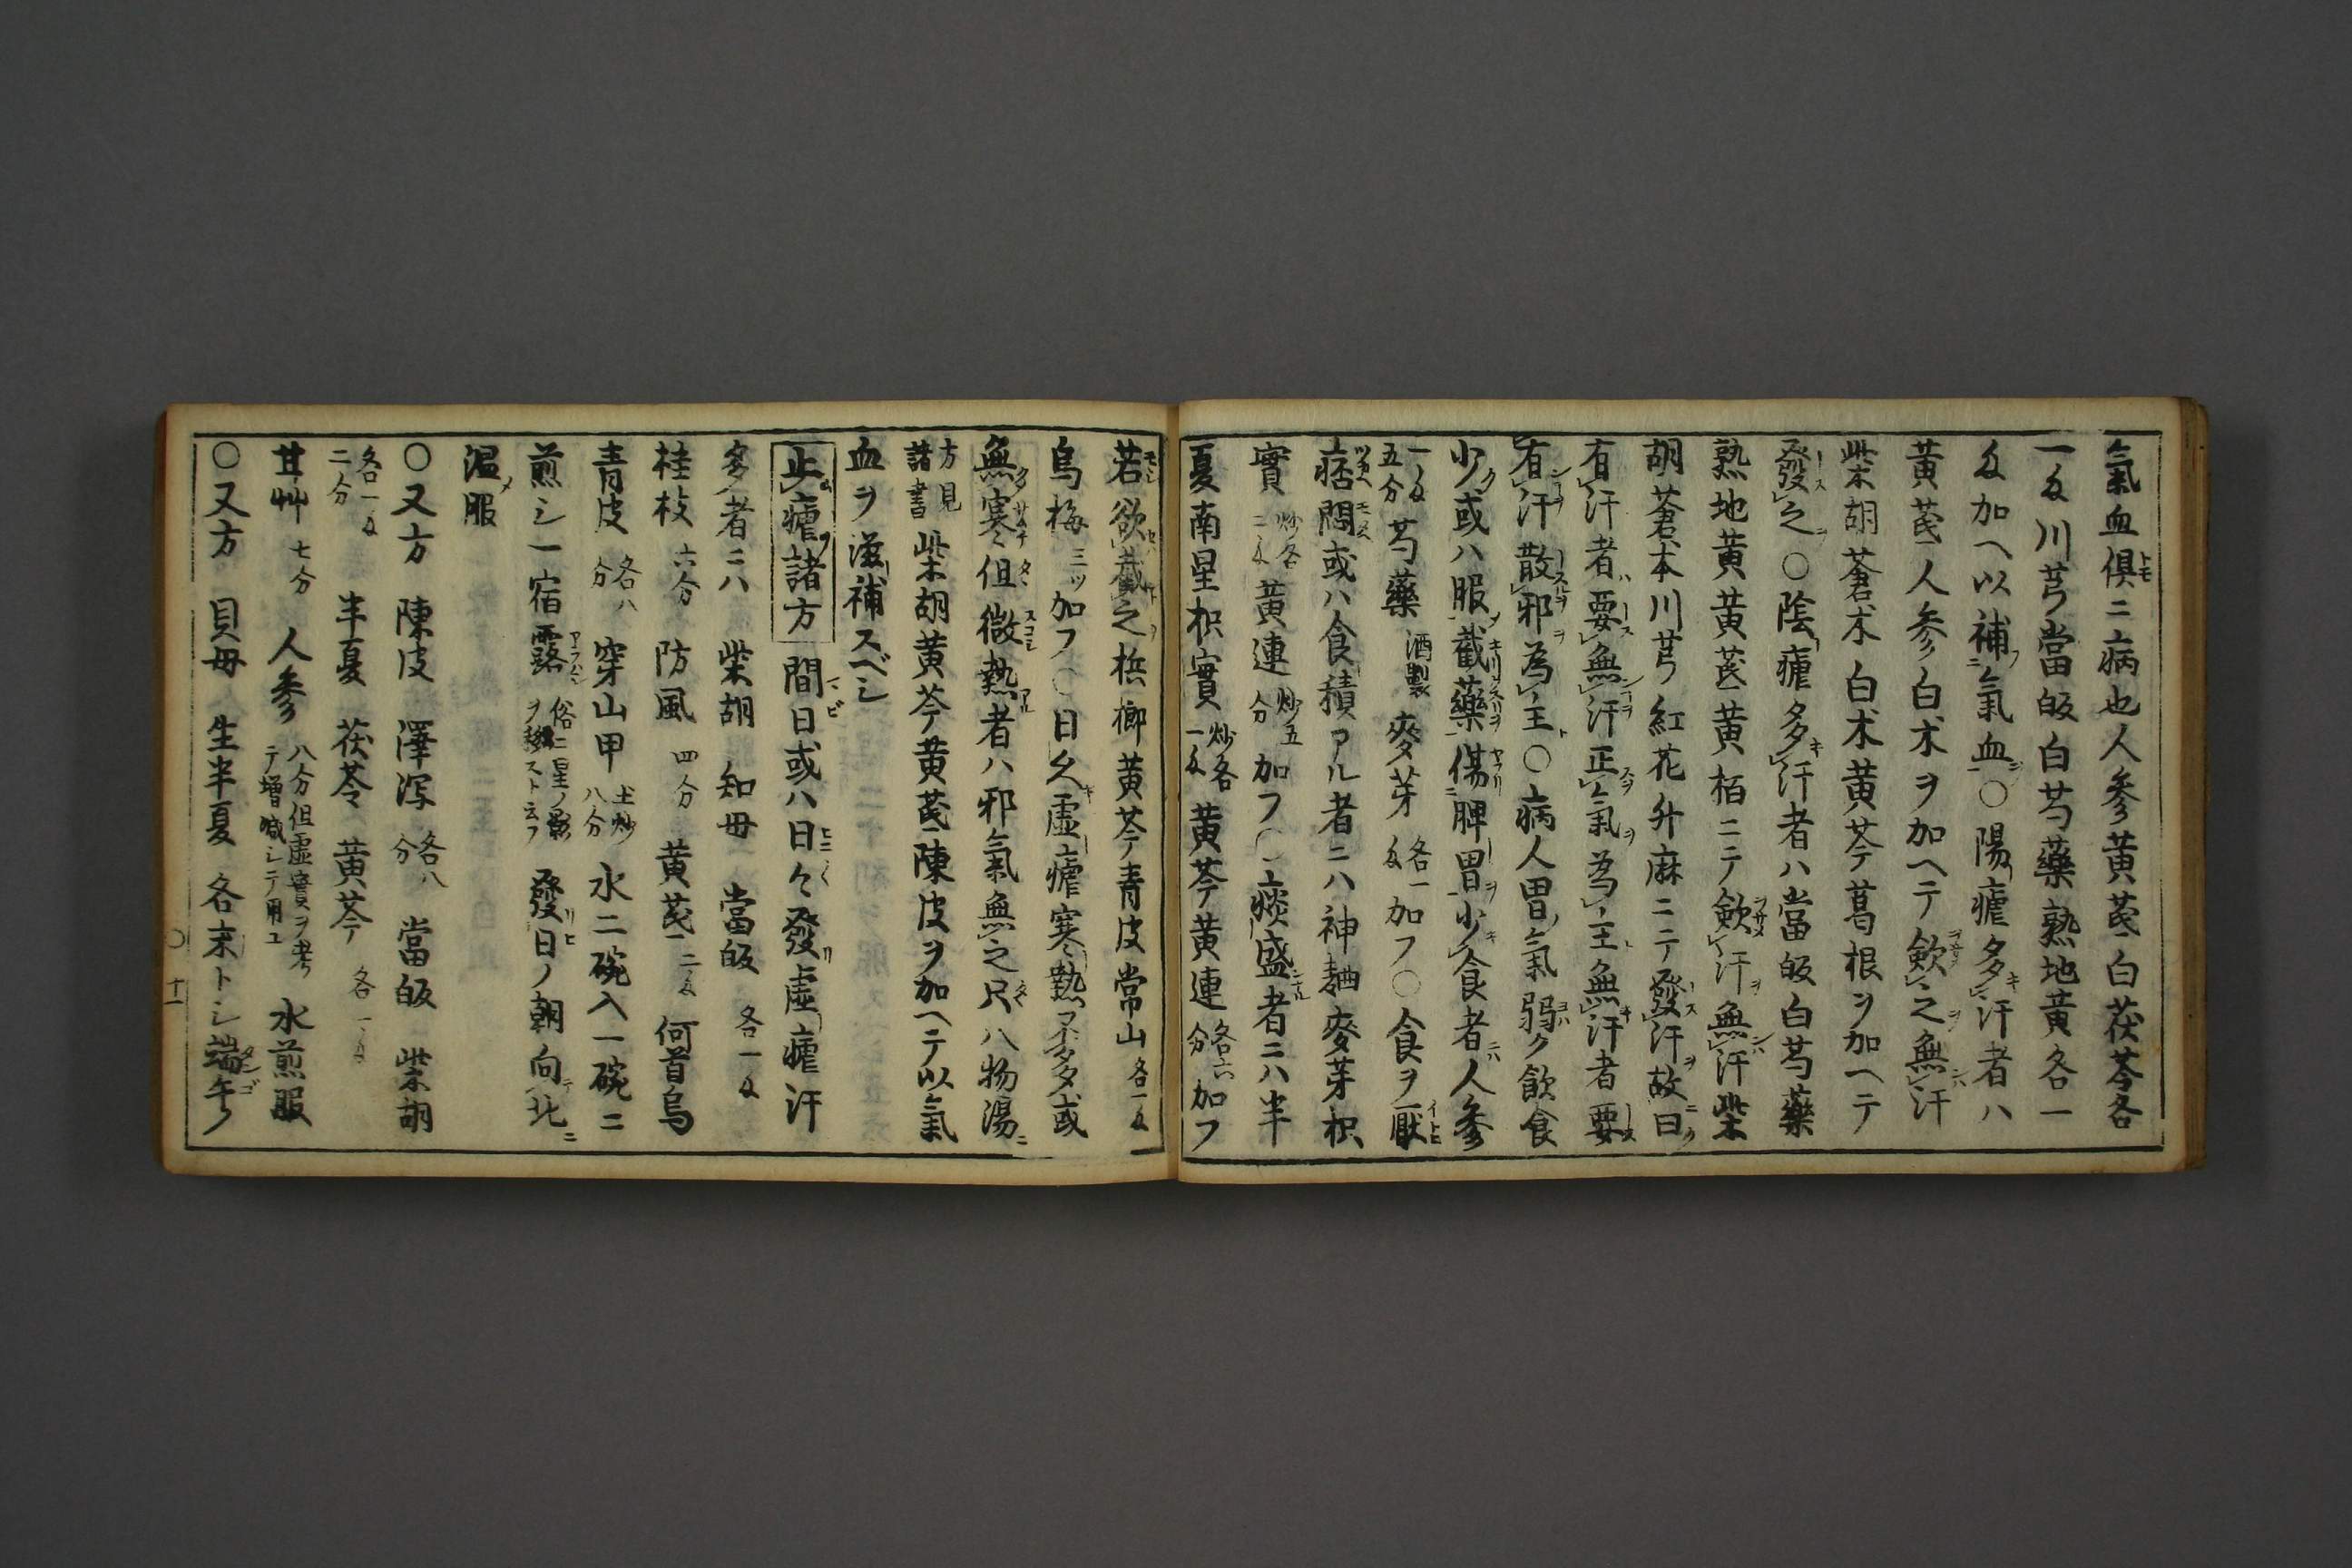 氣血俱ニ病也人參黄芪白茯苓各
一匁川芎當皈白芍藥熟地黄各一
匁加ヘ以補氣血○陽瘧多汗者ハ
黄芪人參白朮ヲ加ヘテ歛之無汗
柴胡蒼朮白朮黄芩葛根ヲ加ヘテ
發之○陰瘧多汗者ハ當皈白芍藥
熟地黄黄芪黄栢ニテ歛汗無汗柴
胡蒼朮川芎紅花升麻ニテ發汗故曰
有汗者要無汗正氣為主無汗者要
有汗散邪為主○病人胃氣弱ク飲食
少或ハ服截藥傷脾胃少食者人參
一匁五分芍藥酒製麥芽各一匁加フ○食ヲ厭
痞悶或ハ食積アル者ニハ神麯麥芽枳
實炒各二匁黄連炒五分加フ○痰盛者ニハ半
夏南星枳實炒各一匁黄芩黄連各六分加フ
若欲截之梹榔黄芩青皮常山各一匁
烏梅三ツ加フ○日久虚瘧寒熱不多或
無寒但微熱者ハ邪氣無之只八物湯ニ
方見諸書柴胡黄芩黄芪陳皮ヲ加ヘテ以氣
血ヲ滋補スベシ
止瘧諸方 間日或ハ日々發虚瘧汗
多者ニハ 柴胡 知母 當皈各一匁
桂枝六分 防風四分 黄芪二匁 何首烏
青皮各八分 穿山甲土炒八分 水二碗入一碗ニ
煎シ一宿露俗ニ星ノ影ヲ移スト云フ 發日ノ朝向北ニ
温服
○又方 陳皮 澤瀉各八分 當皈 柴胡
各一匁二分 半夏 茯苓 黄芩各一匁
甘艸七分 人參八分但虚實ヲ考テ増減シテ用ユ 水煎服
○又方 貝母 生半夏 各末トシ端午ノ
十一